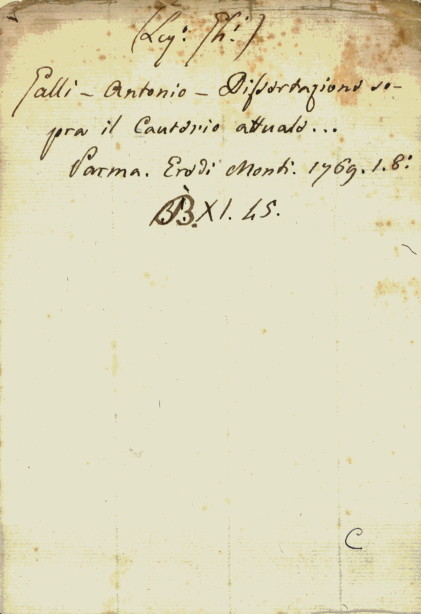 Galli - Antonio - Dissertazione so-
pra il Cauterio attuale...
Parma. Eredi Monti. 1769. 1. 8:
XI. 45.
C